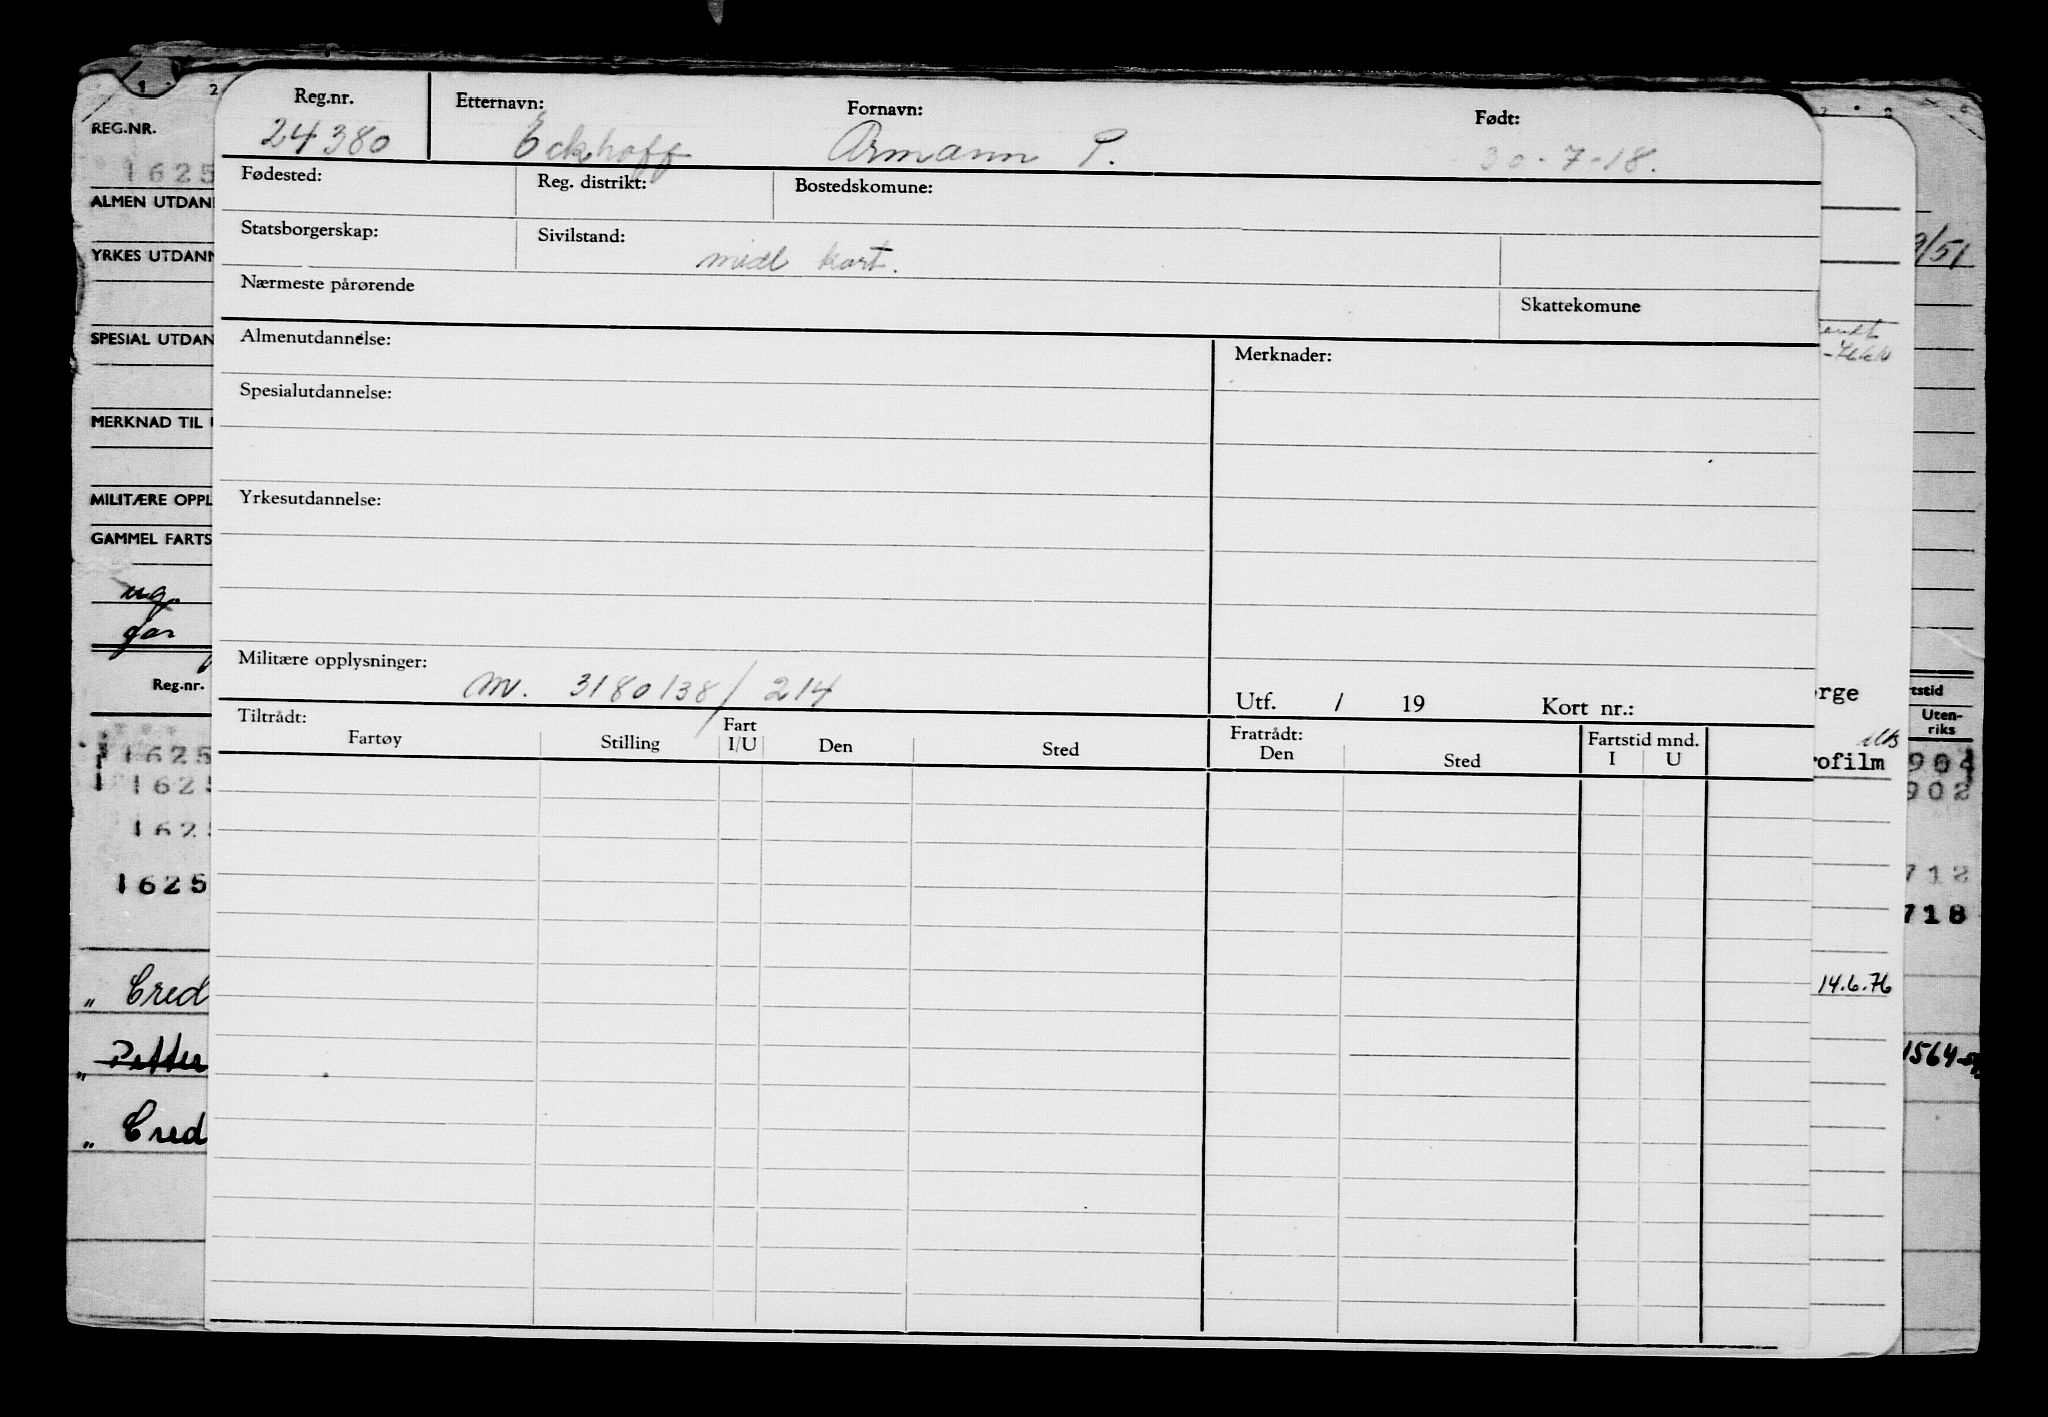 Reg.nr. Etternavn: Fornavn: Født:
24380 Eckhoff Armann P. 30-7-18.
Fødested: Reg. distrikt: Bostedskomune:
Statsborgerskap: Sivilstand:
midl kort.
Nærmeste pårørende Skattekomune
Almenutdannelse: Merknader:
Spesialutdannelse:
Yrkesutdannelse:
Militære opplysninger: M. 3180138/214
Utf. / 19 Kort nr.:
Tiltrådt: Fart Fratrådt: Fartstid mnd.
Fartøy Stilling I/U Den Sted Den Sted I U
1 2
REG.NR.
1625
ALMEN UTDAN
YRKES UTDANN
SPESIAL UTDAN
MERKNAD TIL
MILITÆRE OPPL
GAMMEL FARTS
Reg.nr.
1625
1625
1625
1625
" Cred
" Petter
" Cred
9/51
orge
rtstid
Uten-
riks
ofilm
904
902
712
718
14.6.76
1564